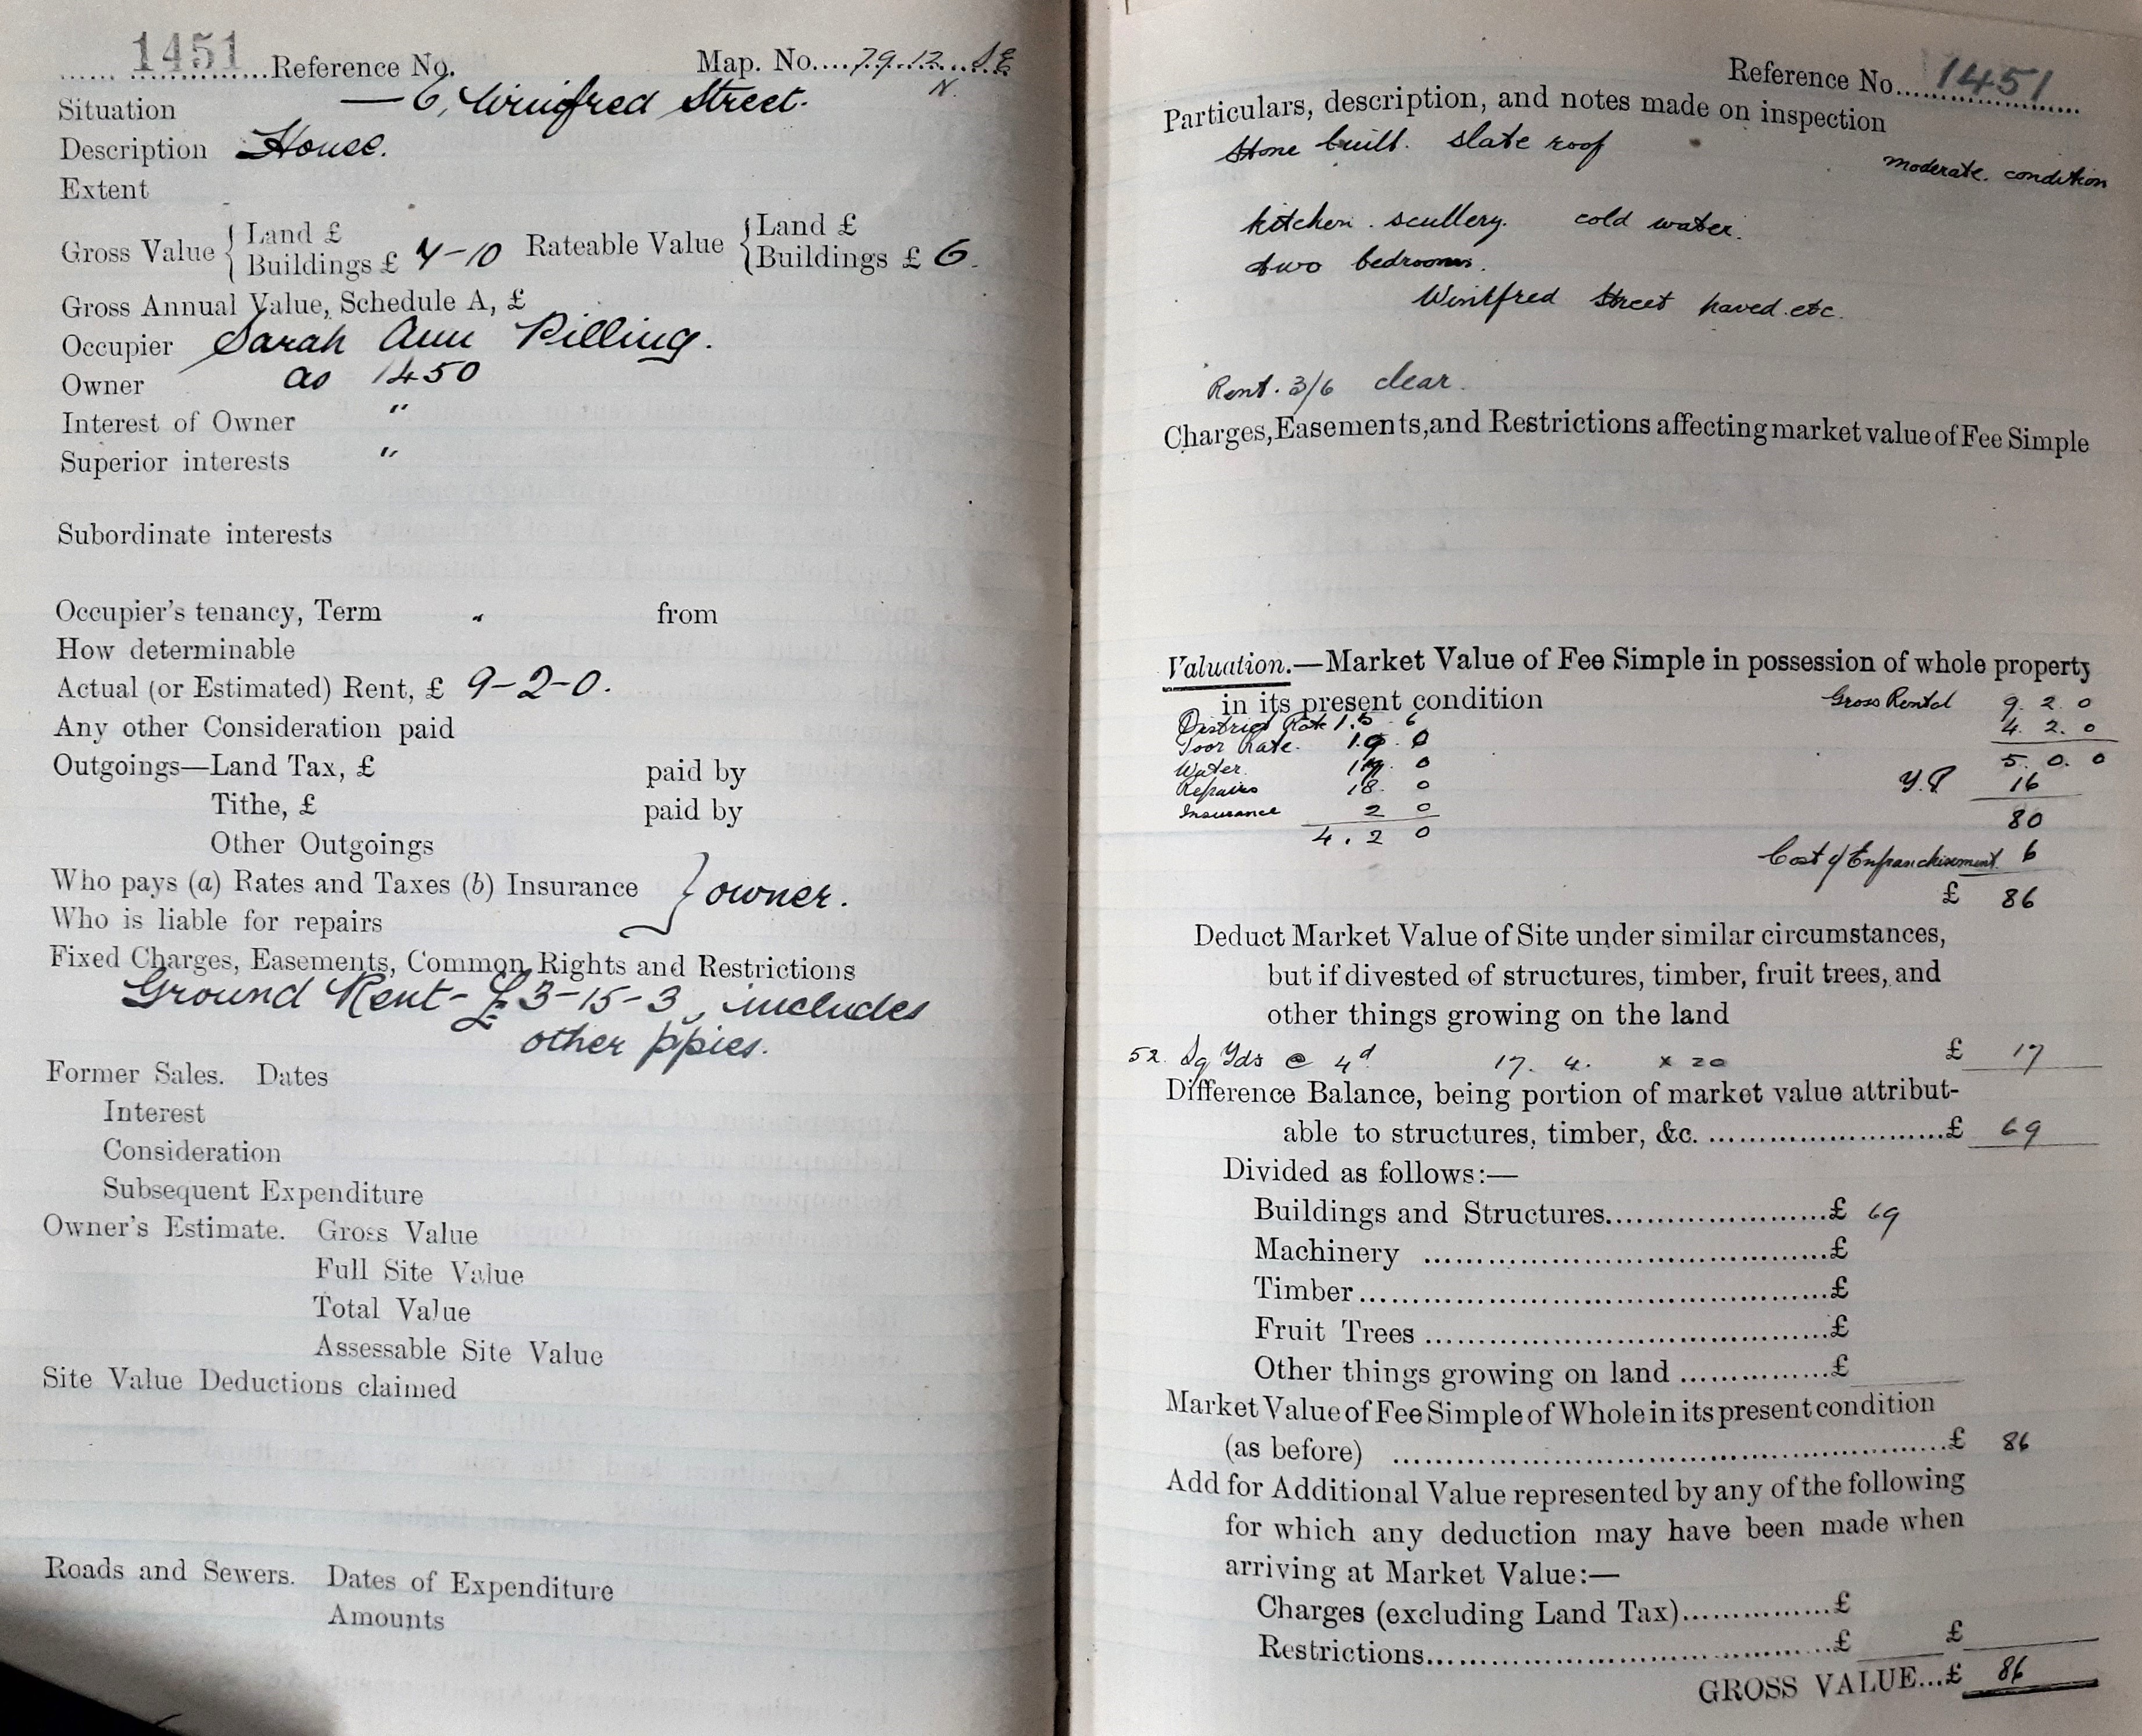 1451 Reference No. Map. No....79.12 SE
N.
Situation — 6, Winifred Street.
Description House.
Extent
Gross Value { Land £
Buildings £ 4-10 Rateable Value { Land £
Buildings £ 6.
Gross Annual Value, Schedule A, £
Occupier Sarah Ann Pilling.
Owner as 1450
Interest of Owner "
Superior interests "
Subordinate interests
Occupier's tenancy, Term from
How determinable
Actual (or Estimated) Rent, £ 9-2-0.
Any other Consideration paid
Outgoings—Land Tax, £ paid by
Tithe, £ paid by
Other Outgoings
Who pays (a) Rates and Taxes (b) Insurance } owner.
Who is liable for repairs
Fixed Charges, Easements, Common Rights and Restrictions
Ground Rent - £3-15-3, includes
other ppies.
Former Sales. Dates
Interest
Consideration
Subsequent Expenditure
Owner's Estimate. Gross Value
Full Site Value
Total Value
Assessable Site Value
Site Value Deductions claimed
Roads and Sewers. Dates of Expenditure
Amounts
Reference No. 1451
Particulars, description, and notes made on inspection
Stone built. slate roof moderate. condition
kitchen. scullery. cold water.
two bedrooms.
Winifred Street paved. etc.
Rent. 3/6 clear.
Charges, Easements, and Restrictions affecting market value of Fee Simple
Valuation.—Market Value of Fee Simple in possession of whole property
in its present condition Gross Rental 9. 2. 0
District Rate 4. 2. 0
Poor Rate. 5. 0. 0
Water. Y.P 16
Repairs 18. 0
Insurance 2 0 80
4. 2 0
Cost of Enfranchisement 6
£ 86
Deduct Market Value of Site under similar circumstances,
but if divested of structures, timber, fruit trees, and
other things growing on the land
52. Sq Yds @ 4d 17. 4. x 20 £ 17
Difference Balance, being portion of market value attribut-
able to structures, timber, &c. ........................£ 69
Divided as follows:—
Buildings and Structures........................£ 69
Machinery ........................£
Timber........................£
Fruit Trees ........................£
Other things growing on land ...............£
Market Value of Fee Simple of Whole in its present condition
(as before) ........................£ 86
Add for Additional Value represented by any of the following
for which any deduction may have been made when
arriving at Market Value:—
Charges (excluding Land Tax)...............£
Restrictions........................£ £
GROSS VALUE...£ 86